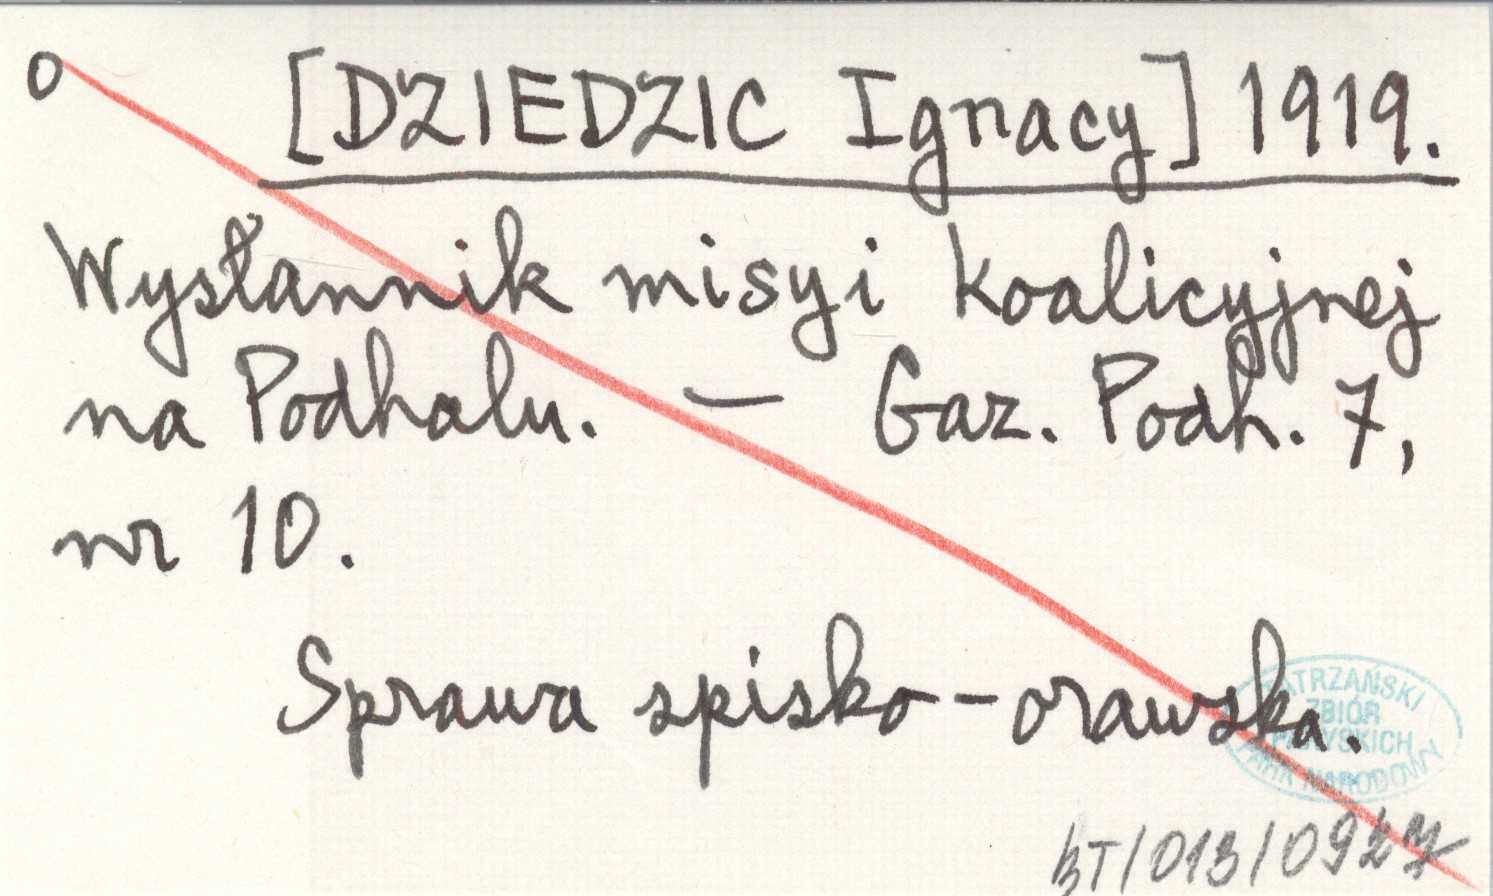 o [DZIEDZIC Ignacy] 1919.
Wysłannik misyi koalicyjnej
na Podhalu. — Gaz. Podh. 7,
nr 10.
Sprawa spisko-orawska.
TATRZAŃSKI
ZBIÓR
PARYSKICH
PARK NARODOWY
KT/013/0927